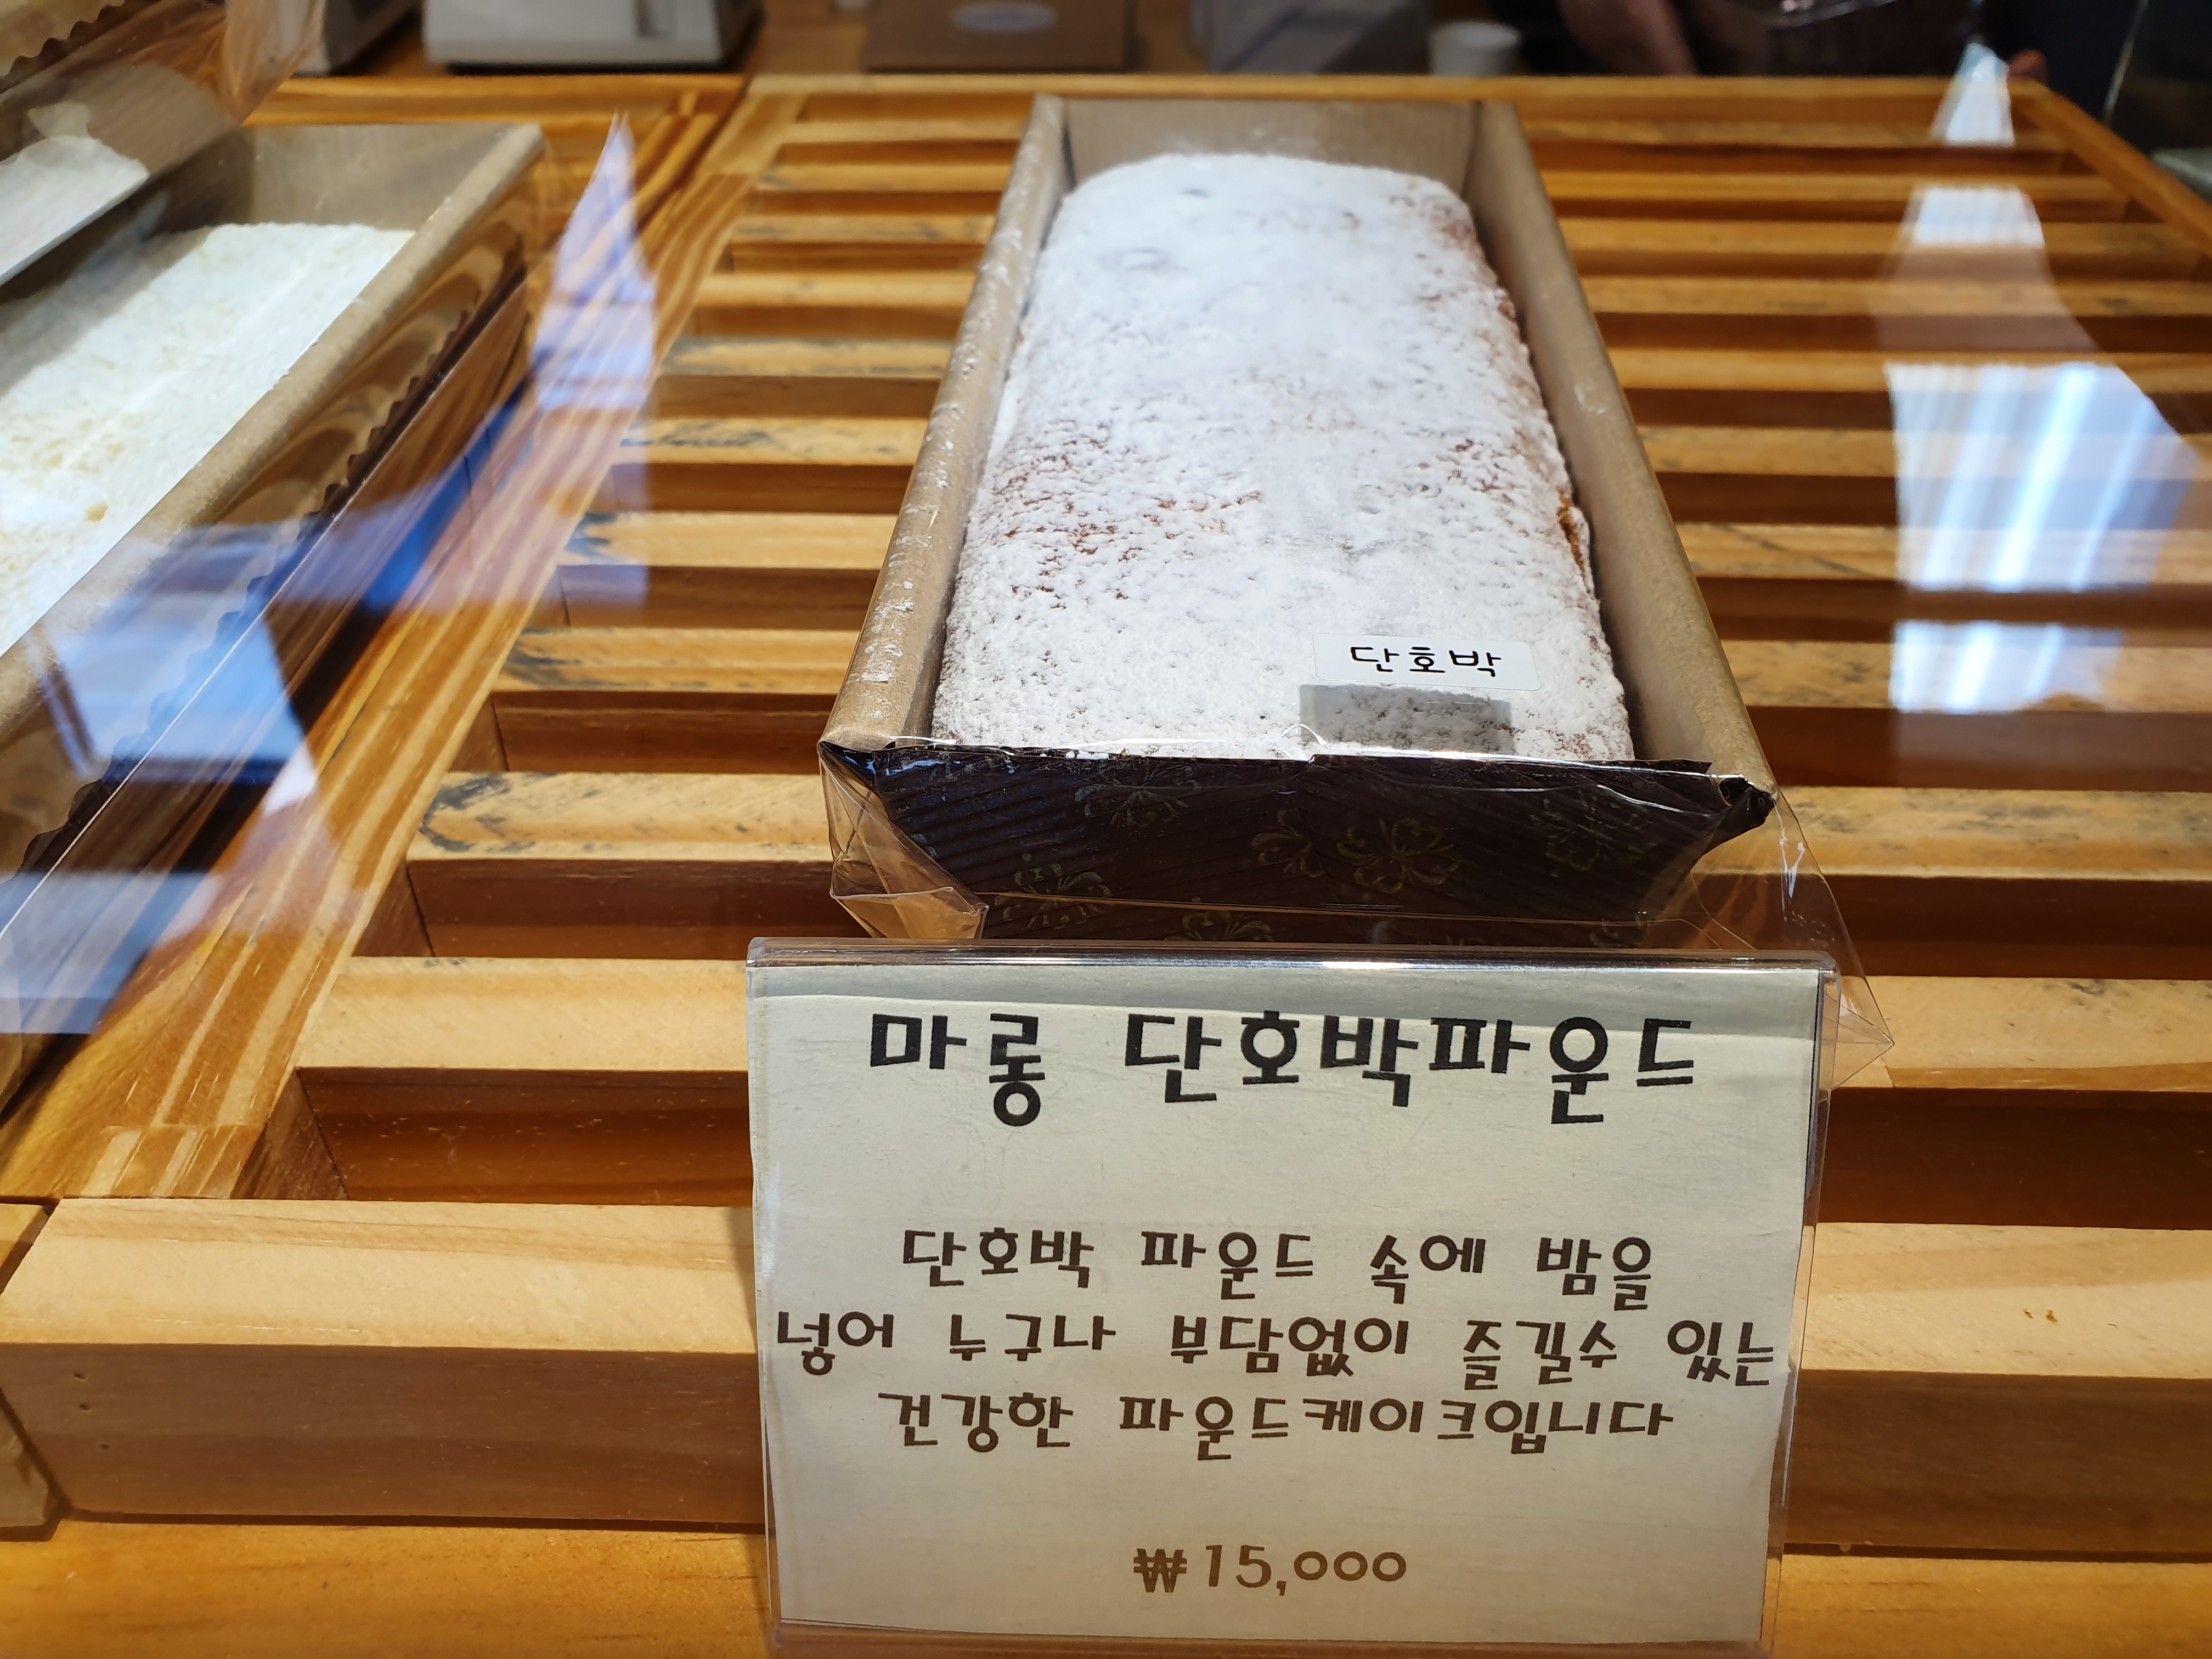 단호박
마롱 단호박파운드
단호박 파운드 속에 밤을
넣어 누구나 부담없이 즐길수 있는
건강한 파운드케이크입니다
₩15,000